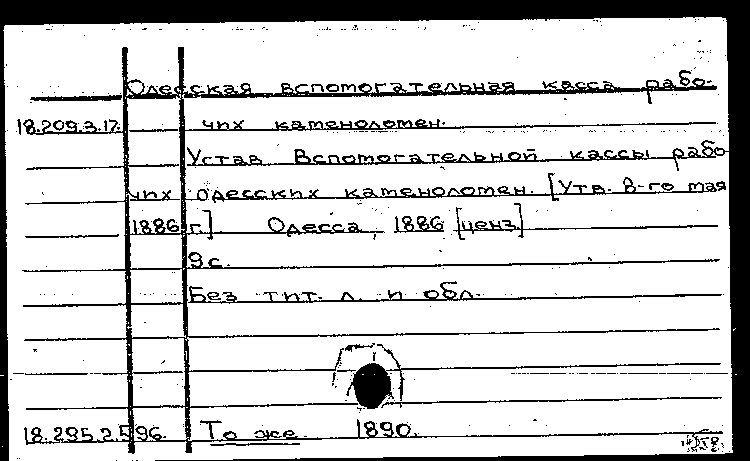 Одесская вспомогательная касса рабо-
18.209.3.17. чих каменоломен.
Устав Вспомогательной кассы рабо
чих одесских каменоломен. [Утв. 8-го мая
1886 г.] Одесса, 1886 [ценз.]
9 с.
Без тит. л. и обл.
18.295.2.596. То же 1890.